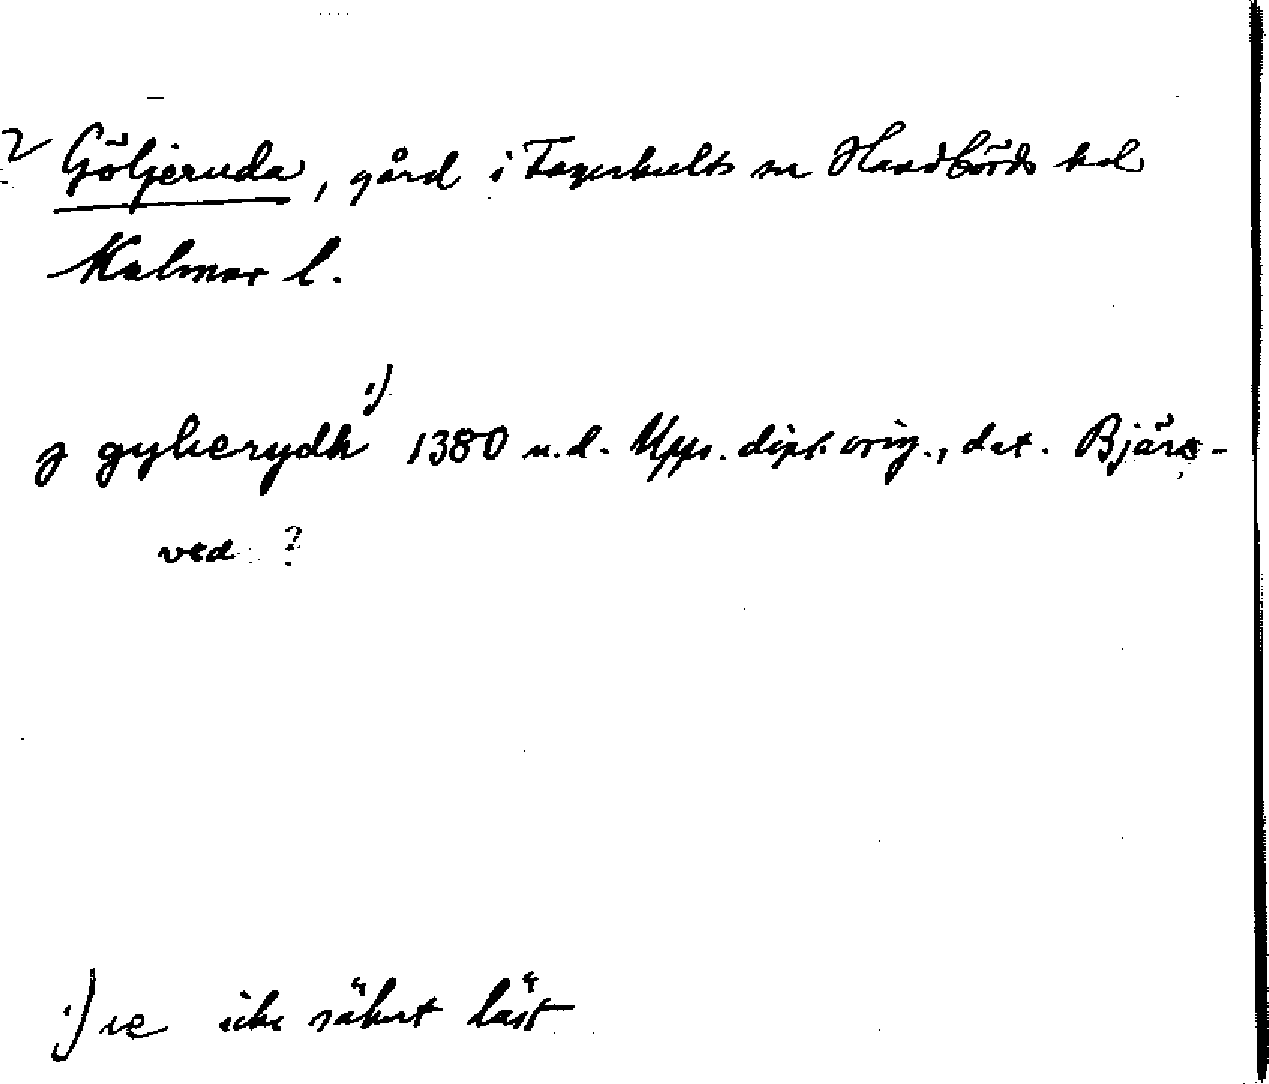 Göljeruda, gård i Fagerhults sn Handbörds hd
Kalmar l.
g gylierydh ¹⁾ 1380 u.d. Upps. dipl. orig., dat. Bjärs-
ved ?
¹⁾ ie icke säkert läst